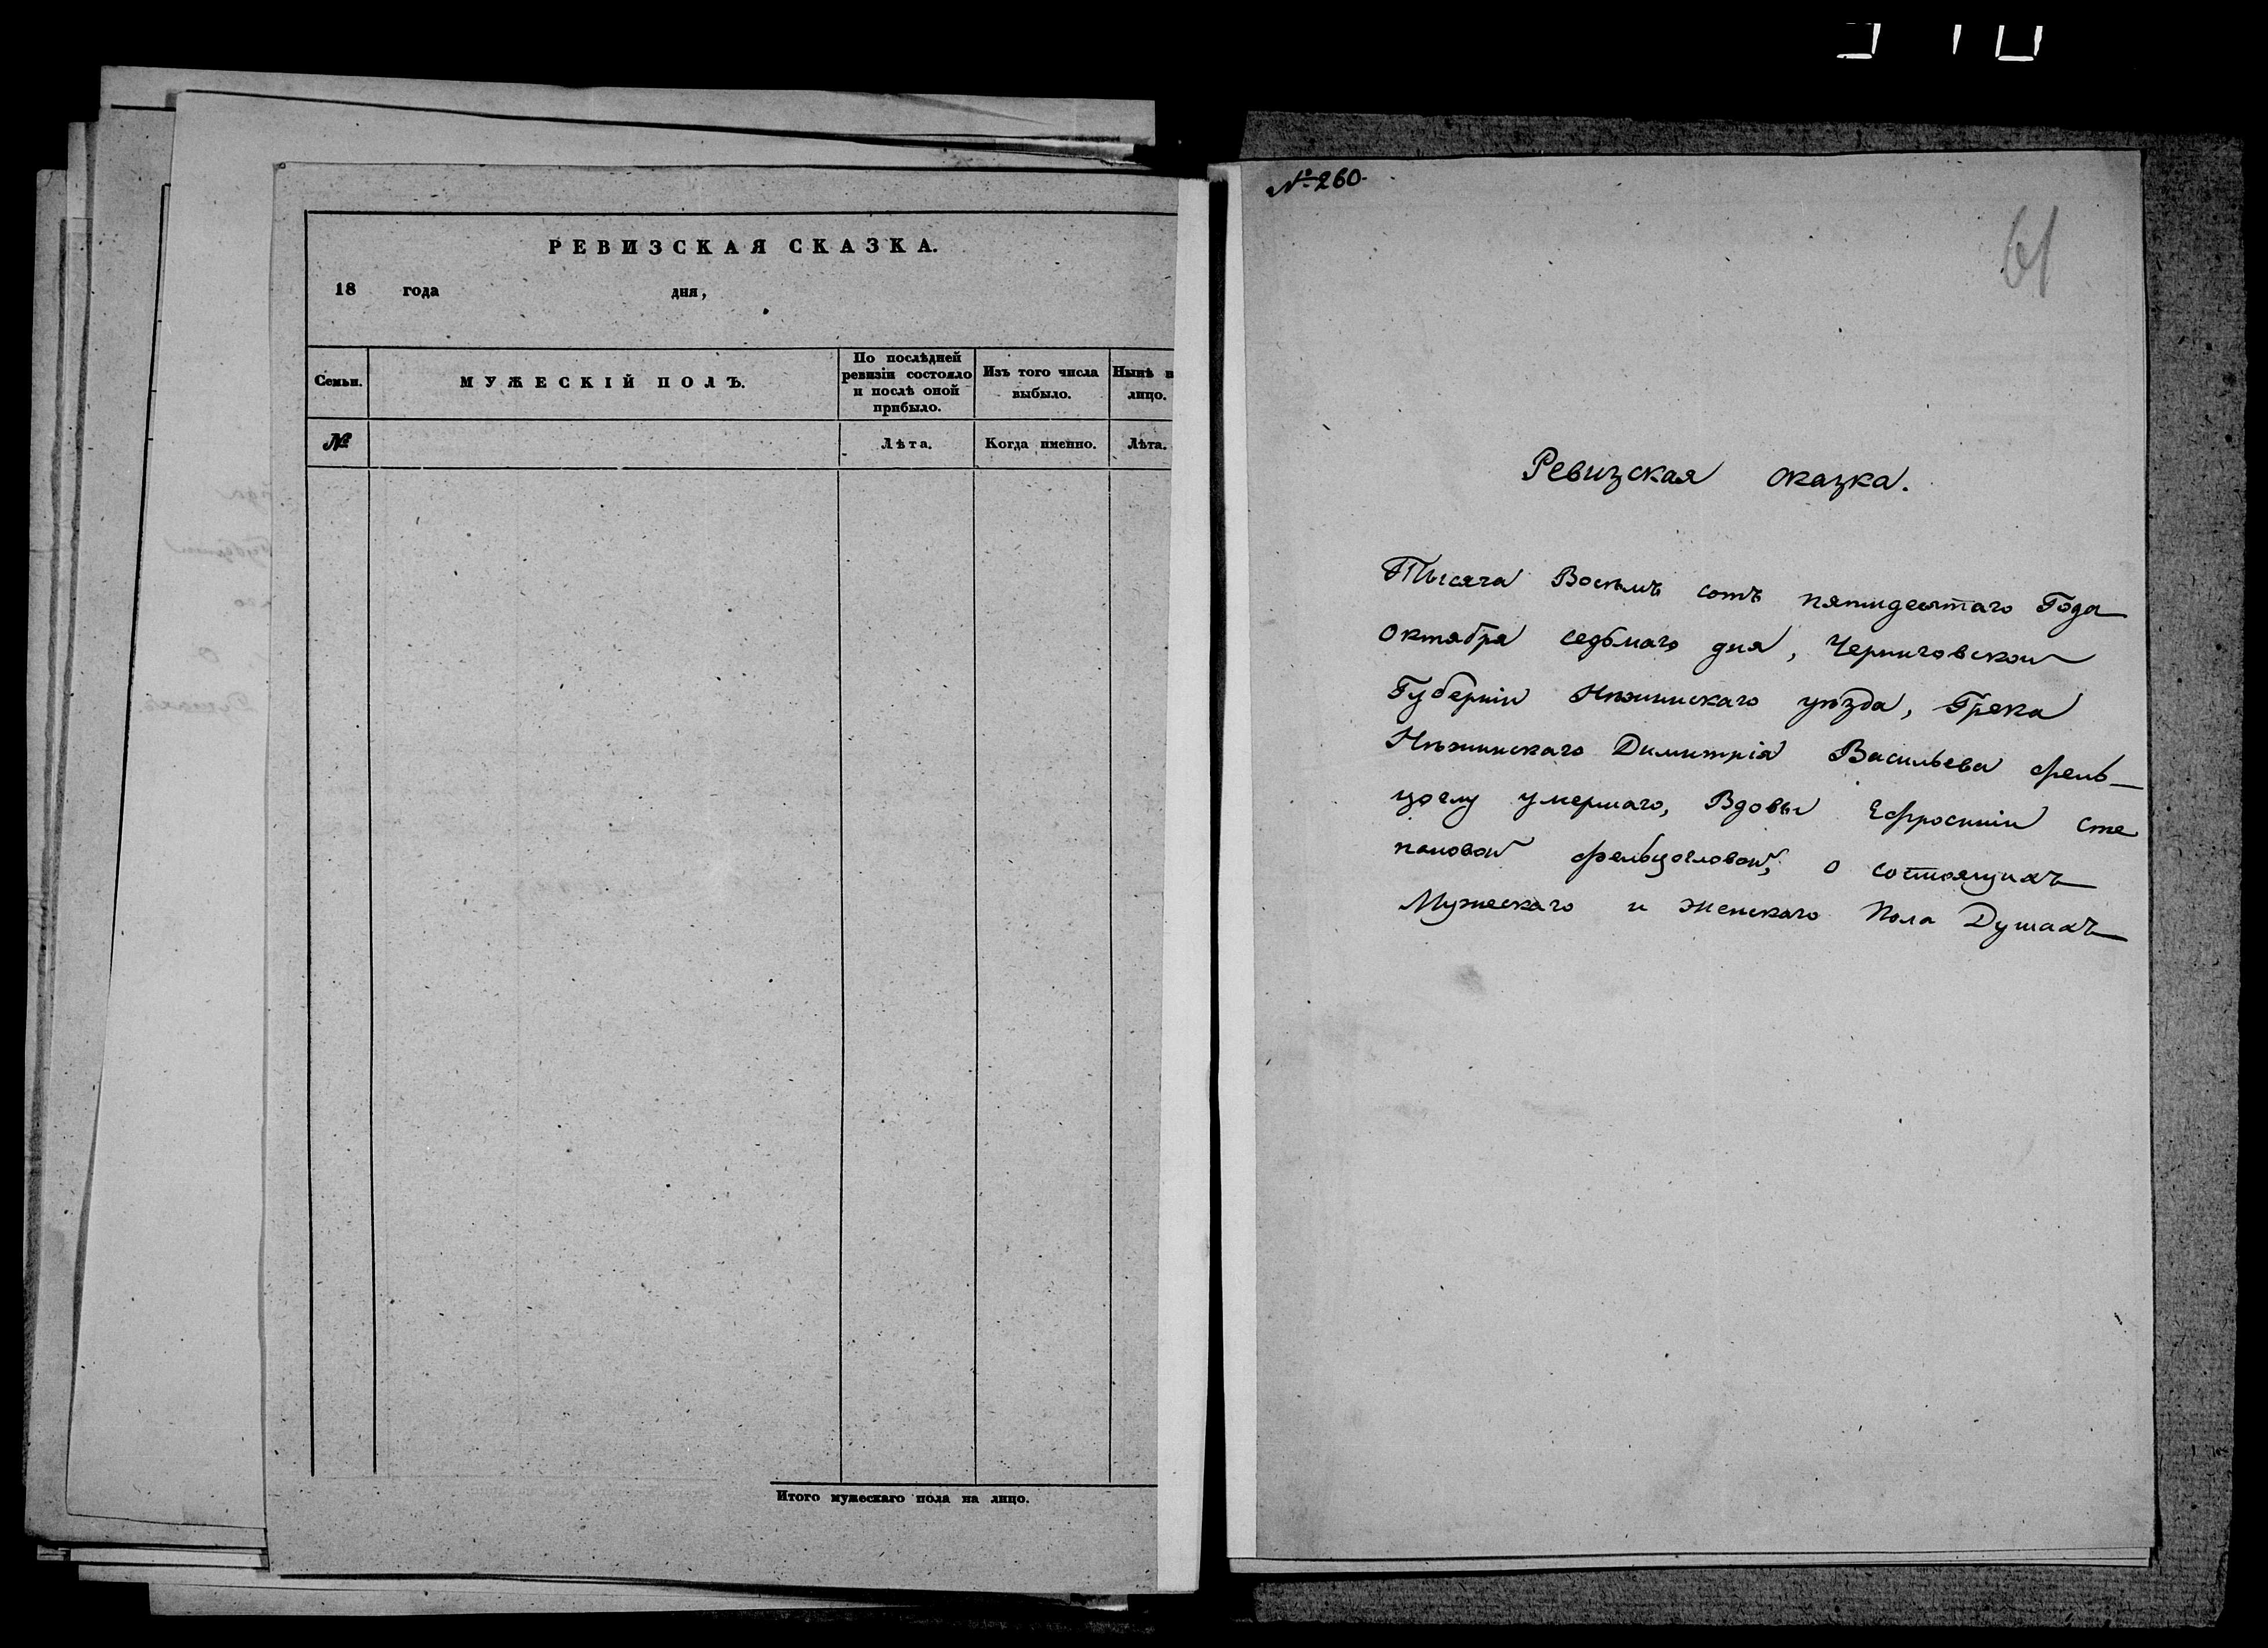 РЕВИЗСКАЯ СКАЗКА.
18 года дня,
Семьи.
МУЖЕСКІЙ ПОЛЪ.
По послѣдней
ревизіи состояло
и послѣ оной
прибыло.
Изъ того числа
выбыло.
Нынѣ н
лицо.
№
Лѣта.
Когда именно.
Лѣта.
Итого мужескаго пола на лицо.
№ 260.
61
Ревизская сказка.
Тысяча Восемь сотъ пятидесятаго Года
Октября седьмаго дня, Черниговской
Губерніи Нѣжинскаго уѣзда, Грека
Нѣжинскаго Димитрія Васильева Фель-
цоглу умершаго, Вдовы Ефросиніи Сте
пановой Фельцогловой, о состоящихъ
Мужескаго и Женскаго Пола Душахъ